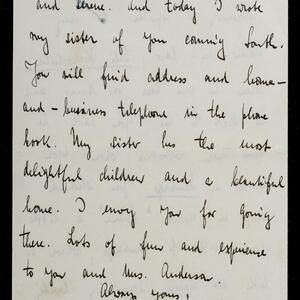 and serene. And today I wrote
my sister of you coming South.
You will find address and home-
and-business telephone in the phone
book. My sister has the most
delightful children and a beautiful
home. I envy you for going
there. Lots of fun and experience
to you and Mrs. Anderson.
Always yours,